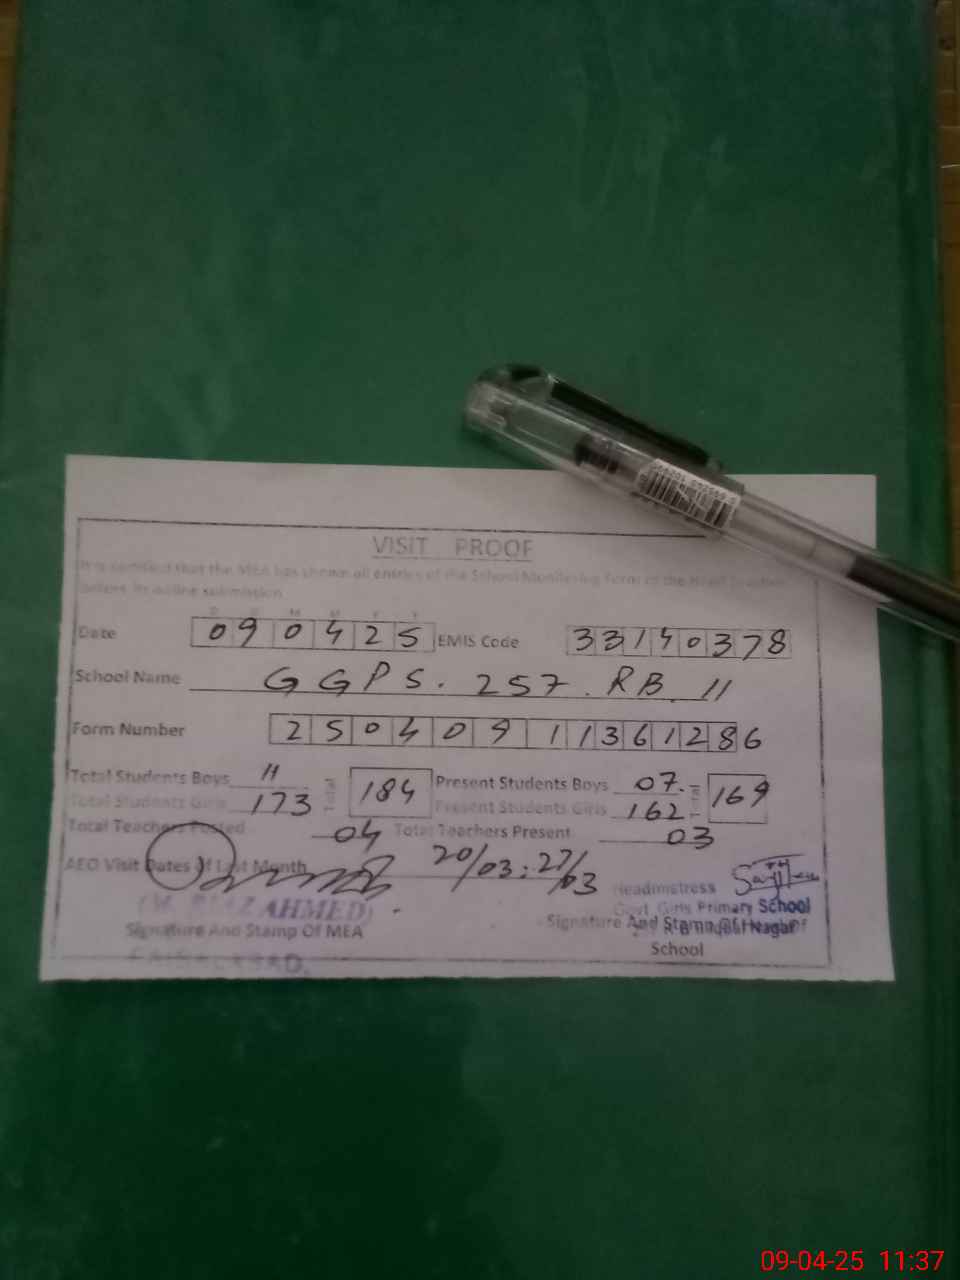 VISIT PROOF
It is certified that the MEA has shown all entries of the School Monitoring Form to the Head Teacher
before its online submission
D D M M Y Y
Date 090425 EMIS Code 33140378
School Name GGPS. 257. RB II
Form Number 25040911361286
Total Students Boys 11 184 Present Students Boys 07 169
Total Students Girls 173 Present Students Girls 162
Total Teachers Posted 04 Total Teachers Present 03
AEO Visit Dates of Last Month 20/03 : 27/03
Headmistress
(M. RIAZ AHMED) Govt. Girls Primary School
Signature And Stamp Of MEA Signature And Stamp Of Head Of
FAISALABAD. School
09-04-25 11:37